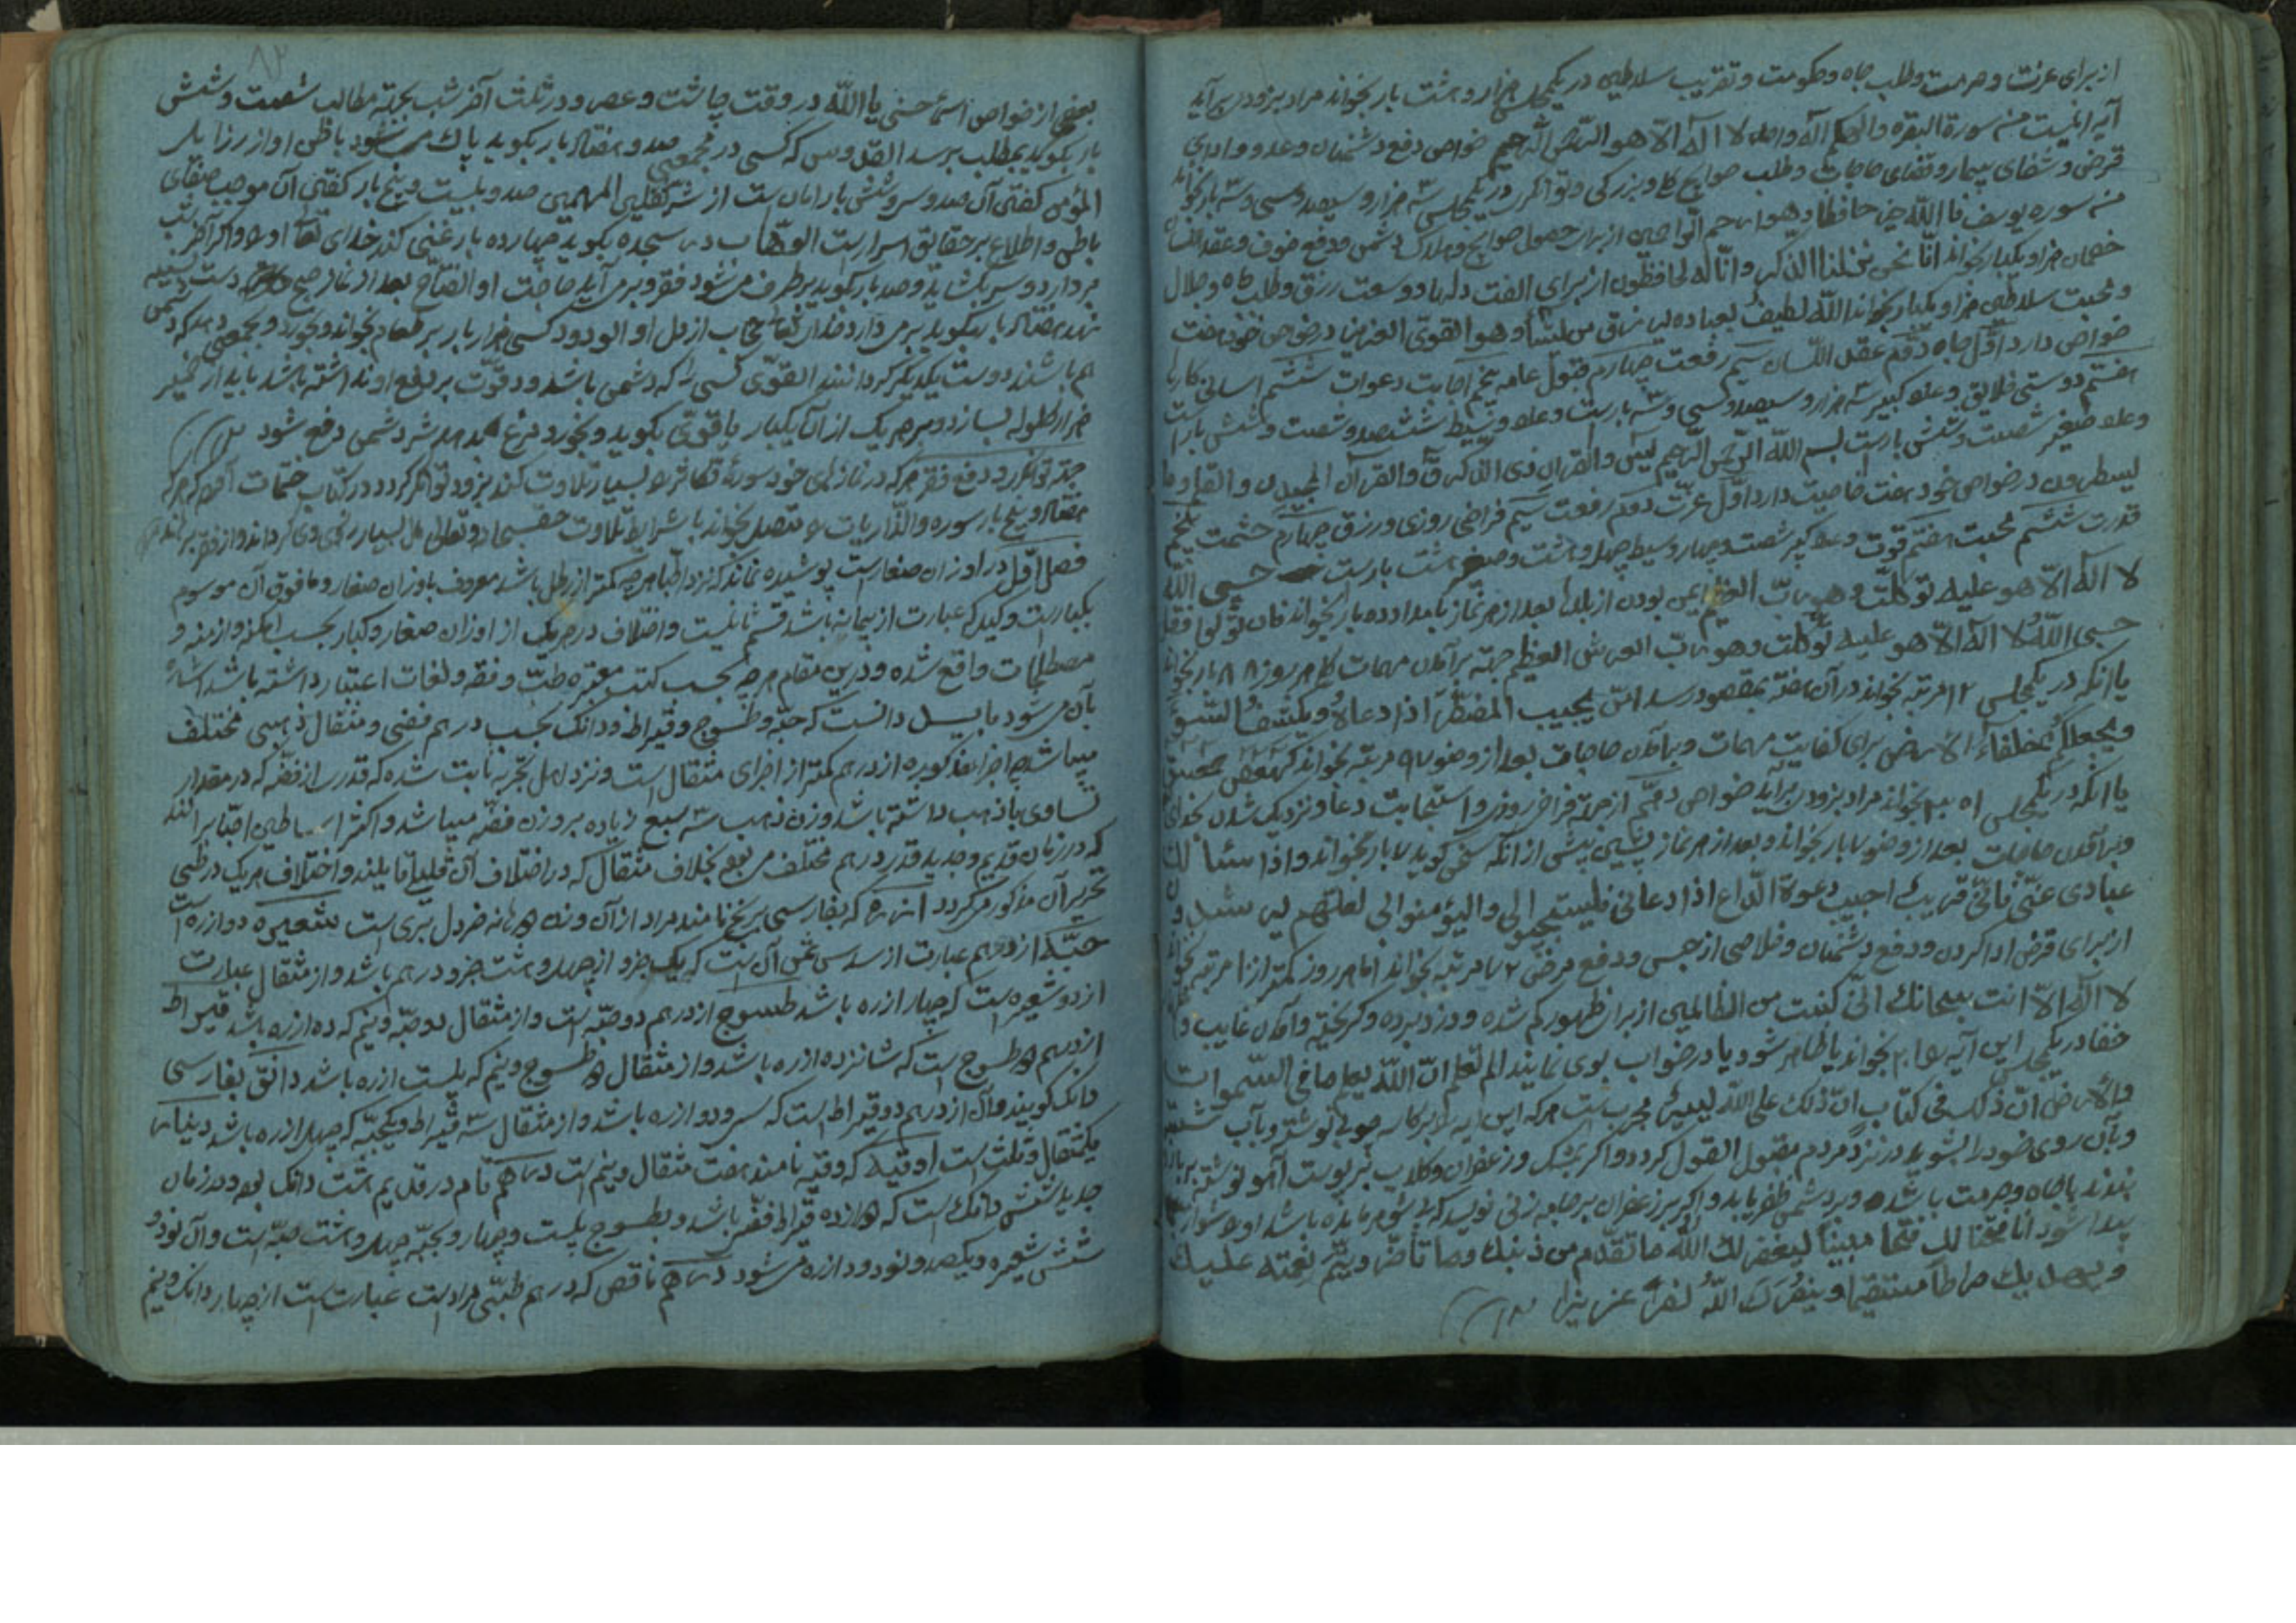 از برای عزت و حرمت و طلب جاه و حکومت و تقریب سلاطین در یکمجلس هزار و هشت بار بخواند مراد بزودی برآید
آیة اینست منه سورة البقره والهکم اله واحد لا اله الا هو الرحمن الرحیم خواص دفع دشمنان و عدو و ادای
قرض و شفای بیمار و قضای حاجات و طلب حوایج و بزرکی و توانکری در یکمجلس سه هزار و سیصد و سی و سه بار بخواند
منه سوره یوسف فالله خیر حافظا وهو ارحم الراحمین از برای حصول حوایج و هلاک دشمن و دفع خوف و عقد
خصمان هزار و یکبار بخواند انا نحن نزلنا الذکر وانا له لحافظون از برای الفت دلها و وسعت رزق و طلب جاه و جلال
و محبت سلاطین هزار و یکبار بخواند الله لطیف بعباده یرزق من یشاء وهو القوی العزیز در خواص خود هفت
خواص دارد اول جاه دوم عقد اللسان سیم رفعت چهارم قبول عامه پنجم اجابت دعوات ششم اسانی کارها
هفتم دوستی خلایق و عدد کبیر سه هزار و سیصد و سی و سه بارست و عدد وسیط ششصد و شصت و شش بار است
و عدد صغیر شصت و شش بارست بسم الله الرحمن الرحیم یس والقران ذی الذکر ق والقرآن المجید ن والقلم وما
یسطرون در خواص خود هفت خاصیت دارد اول عزت دوم رفعت سیم فراخی روزی و رزق چهارم حشمت پنجم
قدرت ششم محبت هفتم قوت و عدد کبیر شصت و چهار وسیط چهل و هشت و صغیر هشت بارست حسبی الله
لا اله الا هو علیه توکلت وهو رب العرش العظیم ایمن بودن از بلاها بعد از هر نماز بامداد ده بار بخواند فان تولوا فقل
حسبی الله لا اله الا هو علیه توکلت وهو رب العرش العظیم جهة برآمدن مهمات کلی هر روز ۸۸ بار بخواند
یا انکه در یکمجلس ۱۲ مرتبه بخواند در آن هفته بمقصود رسد امن یجیب المضطر اذا دعاه ویکشف السوء
ویجعلکم خلفاء الارض برای کفایت مهمات و برآمدن حاجات بعد از وضو ۹۷ مرتبه بخواند کهیعص حمعسق
یا انکه در یکمجلس بخواند مراد بزودی برآید خواص دهم از جهة فراخی روزی و استجابت دعا و نزدیک شدن بخدای
و برآمدن حاجات بعد از وضو ۷ بار بخواند و بعد از هر نماز پسین پیش از انکه سخن کوید ۷ بار بخواند واذا سئالک
عبادی عنی فانی قریب اجیب دعوة الداع اذا دعانی فلیستجیبوا لی والیؤمنوا لی لعلهم یرشدون
از برای قرض ادا کردن و دفع دشمنان و خلاصی از حبس و دفع مرض ۷۲ مرتبه بخواند اما هر روز کمتر از مرتبه بخواند
لا اله الا انت سبحانک انی کنت من الظالمین از برای ظهور کم شده و دزد برده و کریخته و آمدن غایب
خفا در یکمجلس این آیه را بخواند یا ظاهر شود یا در خواب بوی نمایند الم تعلم ان الله یعلم ما فی السموات
والارض ان ذلک فی کتاب ان ذلک علی الله یسیر مجرب است هرکه این آیه را بر کاسه چوبی نوشته و بآب شسته
و بآن روی خود را بشوید در نزد مردم مقبول القول کردد و اکر بمشک و زعفران و کلاب بر پوست آهو نوشته بر بازو
بندد با جاه و حرمت باشد و بر دشمن ظفر یابد و اکر بزعفران بر جامه زنی نویسد که بی شوهر مانده باشد او را شوهر
پیدا شود انا فتحنا لک فتحا مبینا لیغفر لک الله ما تقدم من ذنبک وما تأخر ویتم نعمته علیک
ویهدیک صراطا مستقیما وینصرک الله نصرا عزیزا
۸۲
بعضی از خواص اسماء حسنی یا الله در وقت چاشت و عصر و در ثلث آخر شب بجهة مطالب شصت و شش
بار بکوید بمطلب برسد القدوس که کسی در مجمعی صد و هفتاد بار بکوید پاک می شود باطن او از رذایل
المؤمن کفتن آن صد و سی و شش بار امان ست از شر ثقلین المهیمن صد و بیست و پنج بار کفتن آن موجب صفای
باطن و اطلاع بر حقایق اسرارست الوهاب در سجده بکوید چهارده بار غنی کند خدای تعالی او را و اکر آخر شب
بردارد و سر بکشاید و صد بار بکوید برطرف می شود فقر و برمی آید حاجت او الفتاح بعد از نماز صبح دست بسینه
نهد هفتاد بار بکوید برمی دارد خدای تعالی حجاب از دل او الودود کسی هزار بار بر طعام بخواند و بخورد و بجمعی دهد که دشمن
هم باشند دوست یکدیکر کردانند القوی کسی را که دشمن باشد و قوت بر دفع او نداشته باشد باید از خمیر
هزار کلوله بسازد و بر هر یک از آن یکبار یا قوی بکوید و بخورد مرغ بدهد شر دشمن دفع شود
جهة توانکری و دفع فقر هرکه در نمازهای خود سورة تکاثر را بسیار تلاوت کند بزودی توانکر کردد در کتاب ختمات آمده که هرکه
هفتاد و پنج بار سوره والذاریات را متصل بخواند با شرایط تلاوت حق سبحانه و تعالی مال بسیار روزی وی کرداند و از فقر برآید
فصل اول در اوزان صغارست پوشیده نماند که نزد اطبا هرچه کمتر از رطل باشد معروف باوزان صغار و مافوق آن موسوم
بکبارست و کیل که عبارت از پیمانه باشد قسم ثالیست و اختلاف در هریک از اوزان صغار و کبار بحسب امکنه و ازمنه و
مصطلحات واقع شده و درین مقام هرچه بحسب کتب معتبره طب و فقه و لغات اعتبار داشته باشد اشاره
بآن می شود باید دانست که حبه و طسوج و قیراط و دانک بحسب درهم فضی و مثقال ذهبی مختلف
میباشد چه اجزاء مذکوره از درهم کمتر از اجزای مثقال است و نزد اهل تجربه ثابت شده که قدری از فضه که در مقدار
تساوی با ذهب داشته باشد وزن ذهب سه سبع زیاده بر وزن فضه میباشد و اکثر اساطین اطبا برانند
که در زمان قدیم و جدید قدر درهم مختلف می بود بخلاف مثقال که در اختلاف آن قلیلی قایلند و اختلاف هریک در طی
تحریر آن مذکور میکردد ارزه که بفارسی برنج نامند مراد از آن وزن دانه خردل بری است شعیره دو ارزه است
حبه از درهم عبارت از سدس ثمن آن ست که یک جزو از چهل و هشت جزو درهم باشد و از مثقال عبارت
از دو شعیره ست که چهار ارزه باشد طسوج از درهم دو حبه است و از مثقال دو حبه و نیم که ده ارزه باشد قیراط
از درهم دو طسوج است که شانزده ارزه باشد و از مثقال دو طسوج و نیم که بیست ارزه باشد دانق بفارسی
دانک کویند و آن از درهم دو قیراط است که سی و دو ارزه باشد و از مثقال سه قیراط و یکحبه که چهل ارزه باشد دینار
یکمثقال و ثلث است اوقیه که وقیه نامند هفت مثقال و نیم است درهم تام در قدیم هشت دانک بود و در زمان
جدید شش دانک است که دوازده قیراط فضی باشد و بطسوج بیست و چهار و بحبه چهل و هشت حبه است و آن نود و
شش شعیره و یکصد و نود و دو ارزه می شود درهم ناقص که درهم طبی مرادست عبارت است از چهار دانک و نیم